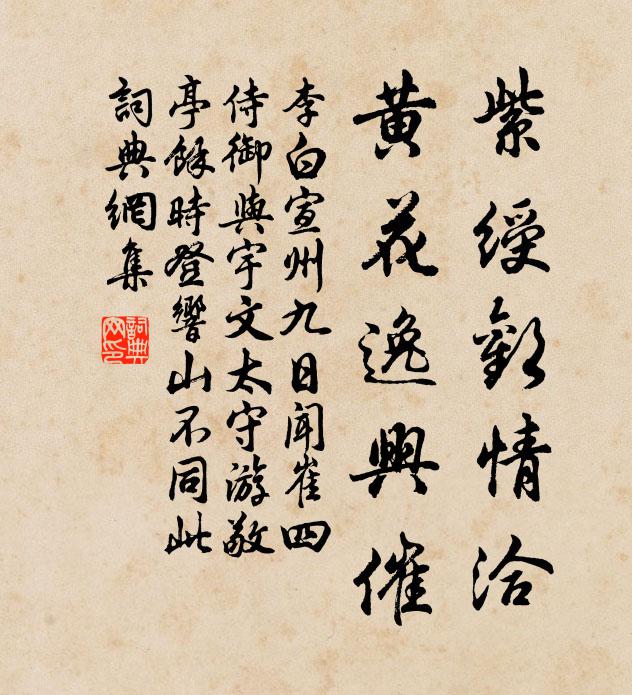 紫綬歡情洽
黃花逸興催
李白宣州九日聞崔四
侍御與宇文太守游敬
亭餘時登響山不同此
詞典網集
詞典
网印